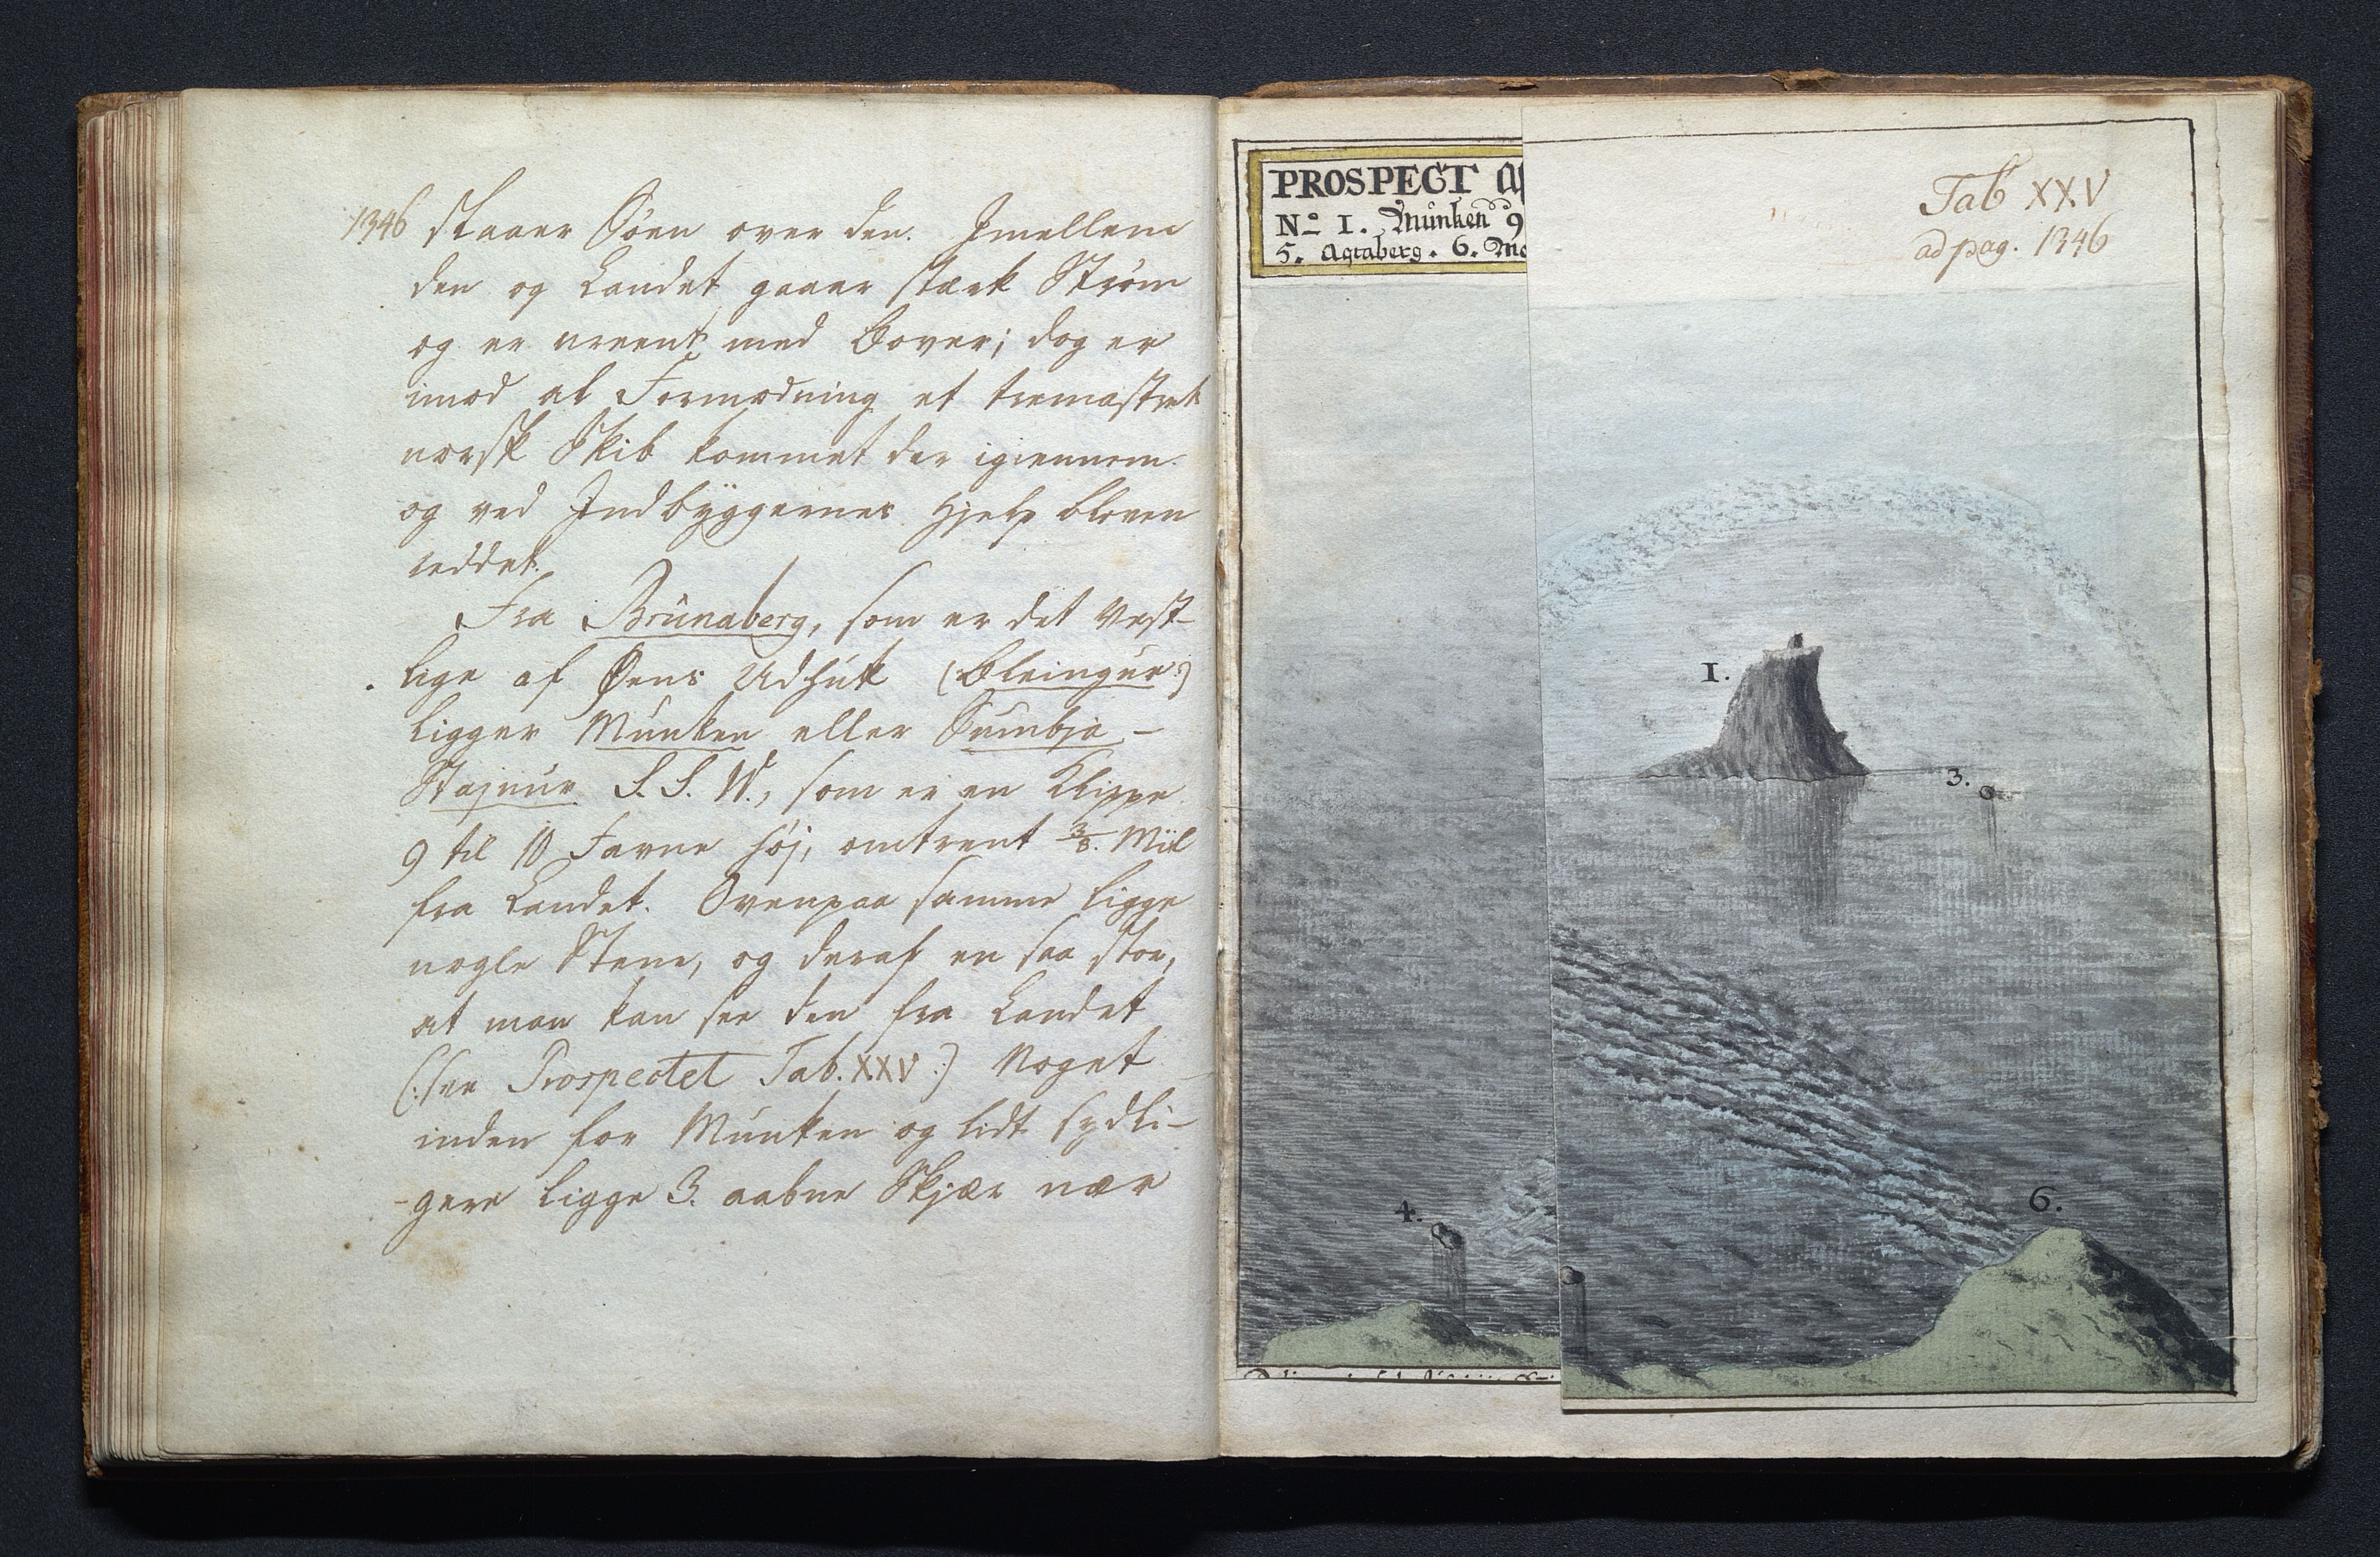 1346 staaer Søen over den. Imellem
den og Landet gaaer stærk Strøm
og er ureent med Bover; dog er
imod al Formodning et tremastret
norsk Skib kommet der igiennem
og ved Indbyggernes Hjelp bleven
reddet.
Fra Brúnaberg, som er det vest-
lige af Øens Udhuk (Bleingur:)
ligger Munken eller Sumbjø-
Stajnur S.S.W., som er en Klippe
9 til 10 Favne høj, omtrent 3/8. Miil
fra Landet. Ovenpaa samme ligge
nogle Stene, og deraf en saa stor,
at man kan see den fra Landet
(:see Prospectet Tab. XXV:) Noget
inden for Munken og lidt sydli-
-gere ligge 3. aabne Skjær nær
PROSPECT
No 1. Munken
5. Agtaberg. 6.
Tab XXV
ad pag. 1346
1.
3.
4.
6.